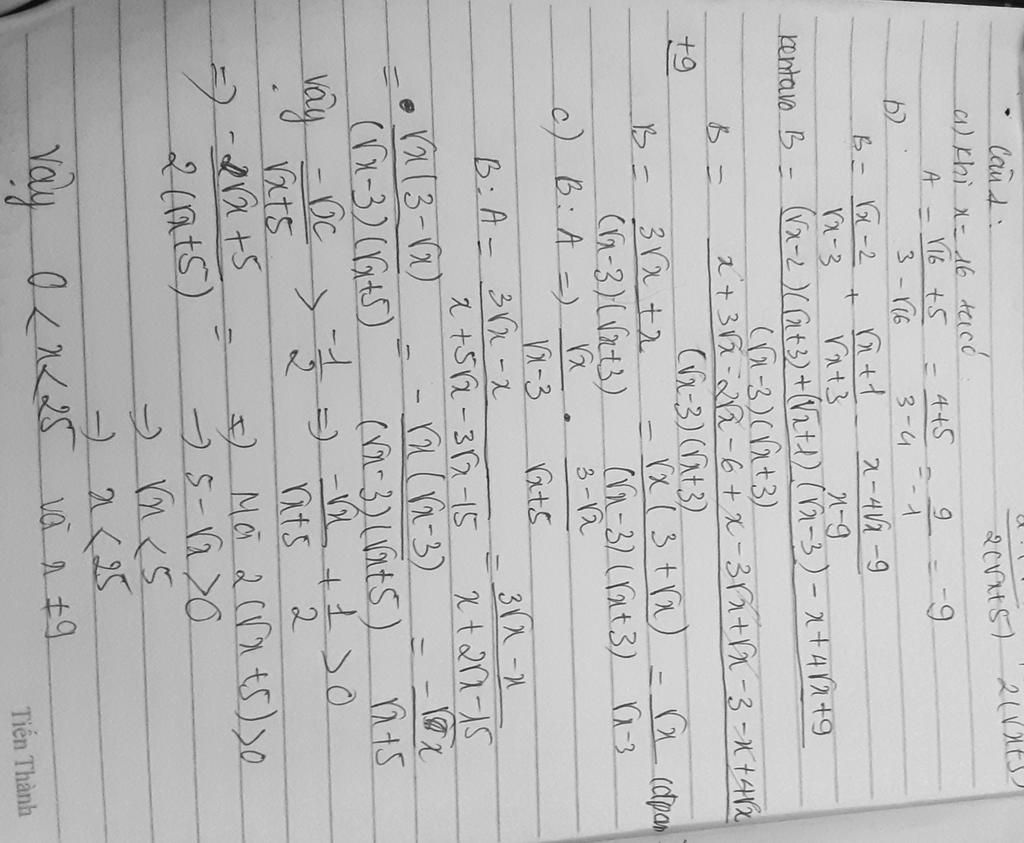 2(√x+5) 2(√x+5)
• Câu 1:
a) Khi x = 16 ta có
A = (√16 + 5)/(3 - √16) = (4+5)/(3-4) = 9/-1 = -9
b)
B = (√x-2)/(√x-3) + (√x+1)/(√x+3) - (x-4√x-9)/(x-9)
B = ((√x-2)(√x+3)+(√x+1)(√x-3)-x+4√x+9)/((√x-3)(√x+3))
B = (x+3√x-2√x-6+x-3√x+√x-3-x+4√x
+9)/((√x-3)(√x+3))
B = (3√x+x)/((√x-3)(√x+3)) = √x(3+√x)/((√x-3)(√x+3)) = √x/(√x-3) (đpcm
c) B : A =) √x/(√x-3) . (3-√x)/(√x+5)
B : A = (3√x-x)/(x+5√x-3√x-15) = (3√x-x)/(x+2√x-15)
= √x(3-√x)/((√x-3)(√x+5)) = -√x(√x-3)/((√x-3)(√x+5)) = -√x/(√x+5)
vậy -√x/(√x+5) > -1/2 =) -√x/(√x+5) + 1/2 > 0
=) (-2√x+5)/(2(√x+5)) = =) Mà 2(√x+5)>0
→ 5-√x>0
→ √x<5
→ x<25
Vậy 0<x<25 và x ≠ 9
Tiến Thành